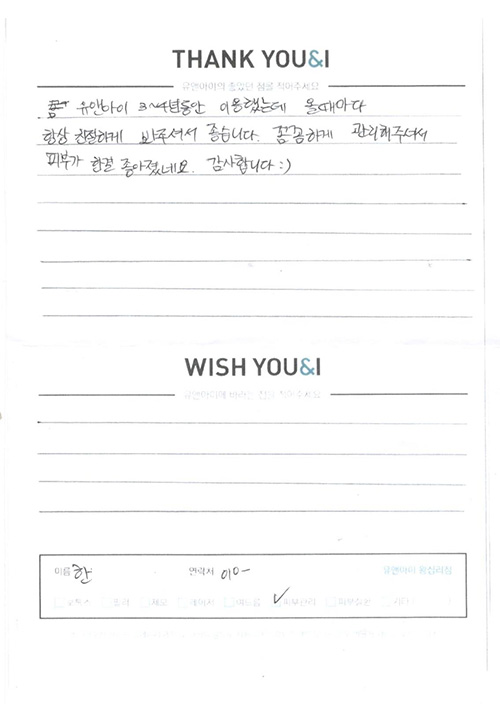 THANK YOU&I
유앤아이의 좋았던 점을 적어주세요
유앤아이 3~4년동안 이용했는데 올때마다
항상 친절하게 봐주셔서 좋습니다. 꼼꼼하게 관리해주셔서
피부가 한결 좋아졌네요. 감사합니다 :)
WISH YOU&I
유앤아이에 바라는 점을 적어주세요
이름 한
연락처 010-
유앤아이 왕십리점
보톡스 필러 제모 레이저 여드름 피부관리 피부질환 기타